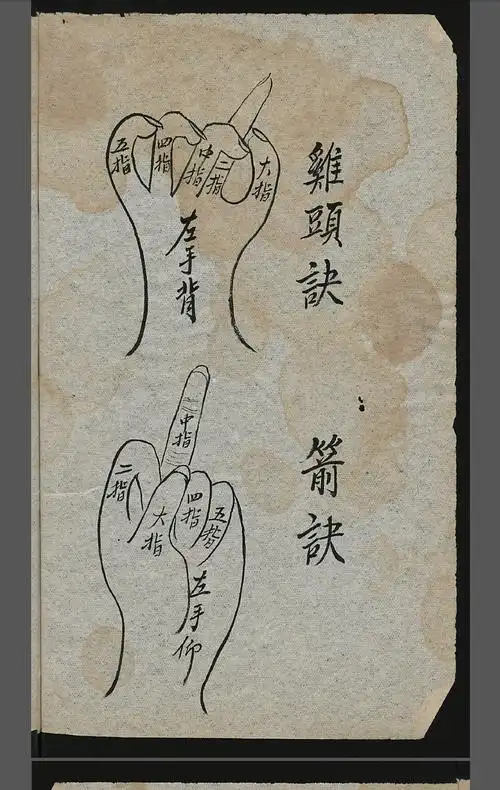 雞頭訣
大指
二指
中指
四指
五指
左手背
箭訣
中指
五指
四指
大指
二指
左手仰